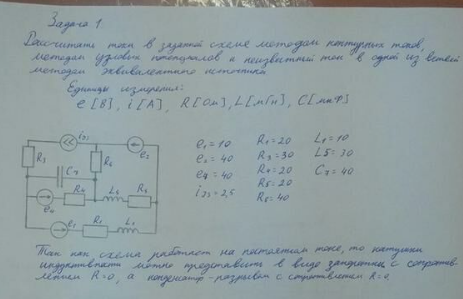 Задача 1
Рассчитать токи в заданной схеме методом контурных токов,
методом узловых потенциалов и неизвестный ток в одной из ветвей
методом эквивалентного источника
Единицы измерения:
e [В], i [А], R [Ом], L [мГн], C [мкФ]
e₁=10 R₁=20 L₁=10
e₂=40 R₃=30 L₅=30
e₄=40 R₄=20 C₃=40
R₅=20
i₂₅=2,5 R₆=40
R₅
C₃
R₆
e₂
R₄
L₅
R₃
e₄
e₁
R₁
L₁
Так как схема работает на постоянном токе, то катушки
индуктивности можно представить в виде закоротки с сопротив-
лением R=0, а конденсатор - разрывом с сопротивлением